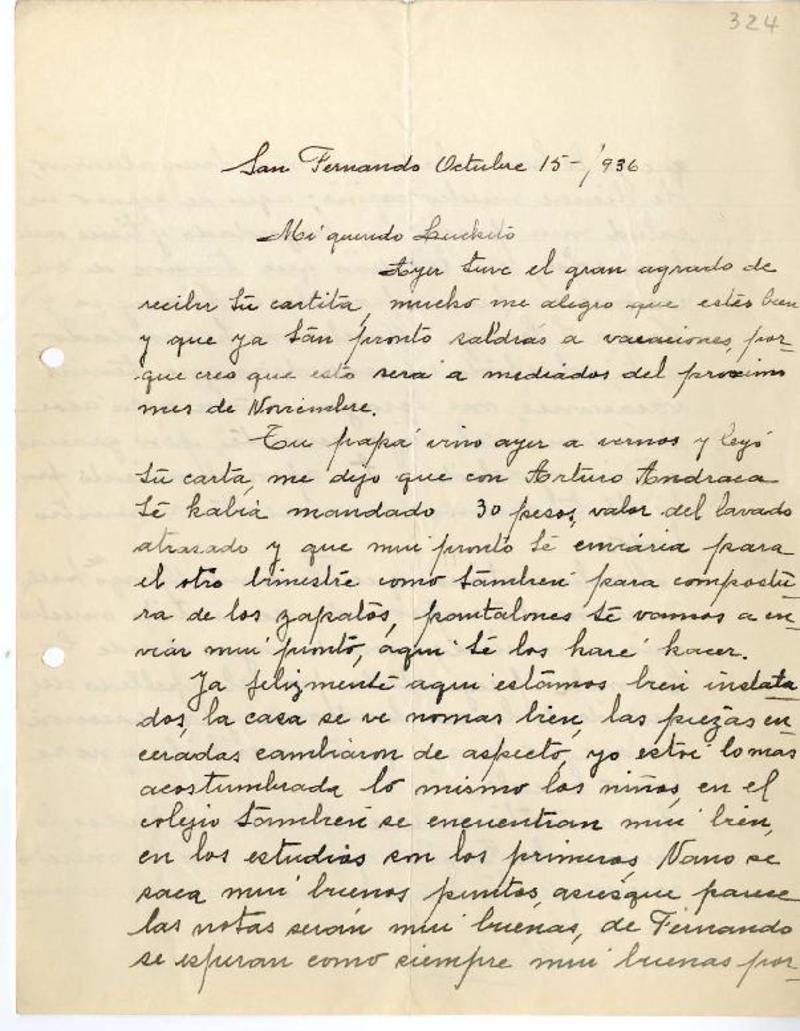 324
San Fernando Octubre 15-/936
Mi querido Luchito
Ayer tuve el gran agrado de
recibir tu cartita, mucho me alegro que estés bien
y que ya tan pronto saldrás a vacaciones, por-
que creo que esto será a mediados del proximo
mes de Noviembre.
Tu papá vino ayer a vernos y leyó
tu carta, me dijo que con Arturo Andraca
te había mandado 30 pesos, valor del lavado
atrasado y que mui pronto te enviária para
el otro bimestre como tambien para compostu-
ra de los zapatos, pantalones te vamos a en-
viár mui pronto, aqui te los haré hacer.
Ya felizmente aqui estámos bien instala
dos, la casa se ve nomas bien, las piezas en
ceradas cambiaron de aspecto, yo estoi lo mas
acostumbrada lo mismo los niños, en el
colejio tambien se encuentran mui bien,
en los estudios son los primeros, Nano se
saca mui buenos puntos, asiesque parece
las notas serán mui buenas, de Fernando
se esperan como siempre mui buenas por-